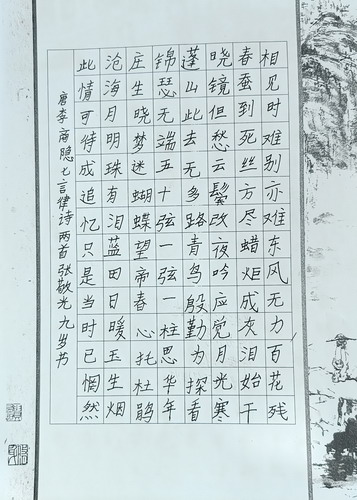 相见时难别亦难东风无力百花残
春蚕到死丝方尽蜡炬成灰泪始干
晓镜但愁云鬓改夜吟应觉月光寒
蓬山此去无多路青鸟殷勤为探看
锦瑟无端五十弦一弦一柱思华年
庄生晓梦迷蝴蝶望帝春心托杜鹃
沧海月明珠有泪蓝田日暖玉生烟
此情可待成追忆只是当时已惘然
唐李商隐七言律诗两首张敬光九岁书